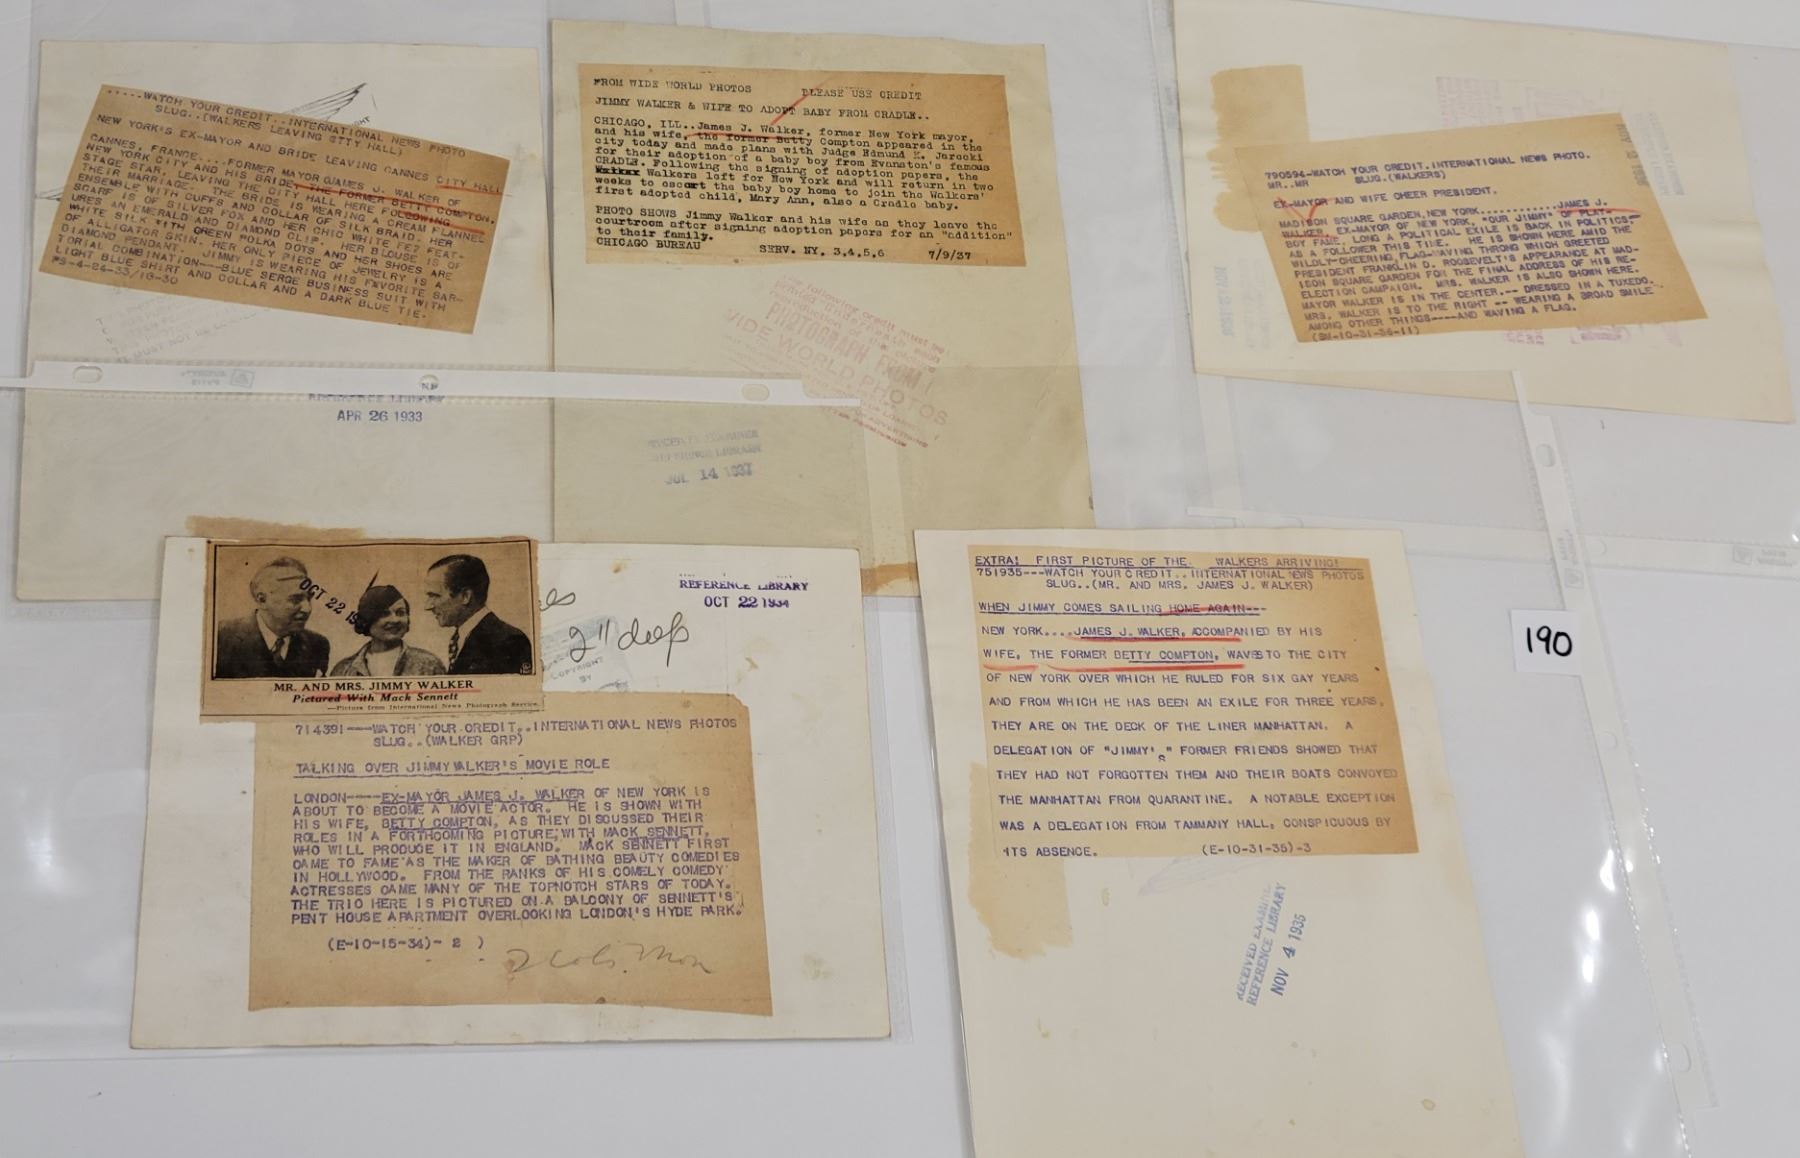 .....WATCH YOUR CREDIT..INTERNATIONAL NEWS PHOTO
SLUG..(WALKERS LEAVING CITY HALL)
NEW YORK'S EX-MAYOR AND BRIDE LEAVING CANNES CITY HALL
CANNES, FRANCE....FORMER MAYOR JAMES J. WALKER OF
NEW YORK CITY AND HIS BRIDE, THE FORMER BETTY COMPTON,
STAGE STAR, LEAVING THE CITY HALL HERE FOLLOWING
THEIR MARRIAGE. THE BRIDE IS WEARING A CREAM FLANNEL
ENSEMBLE WITH CUFFS AND COLLAR OF SILK BRAID. HER
SCARF IS OF SILVER FOX AND HER CHIC WHITE FEZ FEAT-
URES AN EMERALD AND DIAMOND CLIP. HER BLOUSE IS OF
WHITE SILK WITH GREEN POLKA DOTS AND HER SHOES ARE
OF ALLIGATOR SKIN. HER ONLY PIECE OF JEWELRY IS A
DIAMOND PENDANT. JIMMY IS WEARING HIS FAVORITE SAR-
TORIAL COMBINATION---BLUE SERGE BUSINESS SUIT WITH
LIGHT BLUE SHIRT AND COLLAR AND A DARK BLUE TIE.
REFERENCE LIBRARY
APR 26 1933
FROM WIDE WORLD PHOTOS PLEASE USE CREDIT
JIMMY WALKER & WIFE TO ADOPT BABY FROM CRADLE..
CHICAGO, ILL..James J. Walker, former New York mayor,
and his wife, the former Betty Compton appeared in the
city today and made plans with Judge Edmund K. Jarecki
for their adoption of a baby boy from Evanston's famous
CRADLE. Following the signing of adoption papers, the
Walkers left for New York and will return in two
weeks to escort the baby boy home to join the Walkers'
first adopted child, Mary Ann, also a Cradle baby.
PHOTO SHOWS Jimmy Walker and his wife as they leave the
courtroom after signing adoption papers for an "addition"
to their family.
CHICAGO BUREAU SERV. NY, 3,4,5,6 7/9/37
PHOTOGRAPH FROM
WIDE WORLD PHOTOS
REFERENCE LIBRARY
JUL 14 1937
790594-WATCH YOUR CREDIT.INTERNATIONAL NEWS PHOTO.
MR..MR SLUG.(WALKERS)
EX-MAYOR AND WIFE CHEER PRESIDENT.
MADISON SQUARE GARDEN,NEW YORK............JAMES J.
WALKER, EX-MAYOR OF NEW YORK, "OUR JIMMY" OF PLAY-
BOY FAME, LONG A POLITICAL EXILE IS BACK IN POLITICS-
AS A FOLLOWER THIS TIME. HE IS SHOWN HERE AMID THE
WILDLY-CHEERING, FLAG-WAVING THRONG WHICH GREETED
PRESIDENT FRANKLIN D. ROOSEVELT'S APPEARANCE AT MAD-
ISON SQUARE GARDEN FOR THE FINAL ADDRESS OF HIS RE-
ELECTION CAMPAIGN. MRS. WALKER IS ALSO SHOWN HERE.
MAYOR WALKER IS IN THE CENTER,-- DRESSED IN A TUXEDO.
MRS. WALKER IS TO THE RIGHT -- WEARING A BROAD SMILE
AMONG OTHER THINGS----AND WAVING A FLAG.
OCT 22
MR. AND MRS. JIMMY WALKER
Pictured With Mack Sennett
—Picture from International News Photograph Service.
REFERENCE LIBRARY
OCT 22 1934
2" deep
COPYRIGHT
BY
714391---WATCH YOUR CREDIT..INTERNATIONAL NEWS PHOTOS
SLUG..(WALKER GRP)
TALKING OVER JIMMY WALKER'S MOVIE ROLE
LONDON----EX-MAYOR JAMES J. WALKER OF NEW YORK IS
ABOUT TO BECOME A MOVIE ACTOR. HE IS SHOWN WITH
HIS WIFE, BETTY COMPTON, AS THEY DISCUSSED THEIR
ROLES IN A FORTHCOMING PICTURE, WITH MACK SENNETT,
WHO WILL PRODUCE IT IN ENGLAND. MACK SENNETT FIRST
CAME TO FAME AS THE MAKER OF BATHING BEAUTY COMEDIES
IN HOLLYWOOD. FROM THE RANKS OF HIS COMELY COMEDY
ACTRESSES CAME MANY OF THE TOPNOTCH STARS OF TODAY.
THE TRIO HERE IS PICTURED ON A BALCONY OF SENNETT'S
PENT HOUSE APARTMENT OVERLOOKING LONDON'S HYDE PARK.
(E-10-15-34)- 2 )
EXTRA! FIRST PICTURE OF THE WALKERS ARRIVING!
751935---WATCH YOUR CREDIT..INTERNATIONAL NEWS PHOTOS
SLUG..(MR. AND MRS. JAMES J. WALKER)
WHEN JIMMY COMES SAILING HOME AGAIN---
NEW YORK....JAMES J. WALKER, ACCOMPANIED BY HIS
WIFE, THE FORMER BETTY COMPTON, WAVES TO THE CITY
OF NEW YORK OVER WHICH HE RULED FOR SIX GAY YEARS
AND FROM WHICH HE HAS BEEN AN EXILE FOR THREE YEARS.
THEY ARE ON THE DECK OF THE LINER MANHATTAN. A
DELEGATION OF "JIMMY'S" FORMER FRIENDS SHOWED THAT
THEY HAD NOT FORGOTTEN THEM AND THEIR BOATS CONVOYED
THE MANHATTAN FROM QUARANTINE. A NOTABLE EXCEPTION
WAS A DELEGATION FROM TAMMANY HALL, CONSPICUOUS BY
ITS ABSENCE. (E-10-31-35)-3
RECEIVED EXAMINER
REFERENCE LIBRARY
NOV 4 1935
190